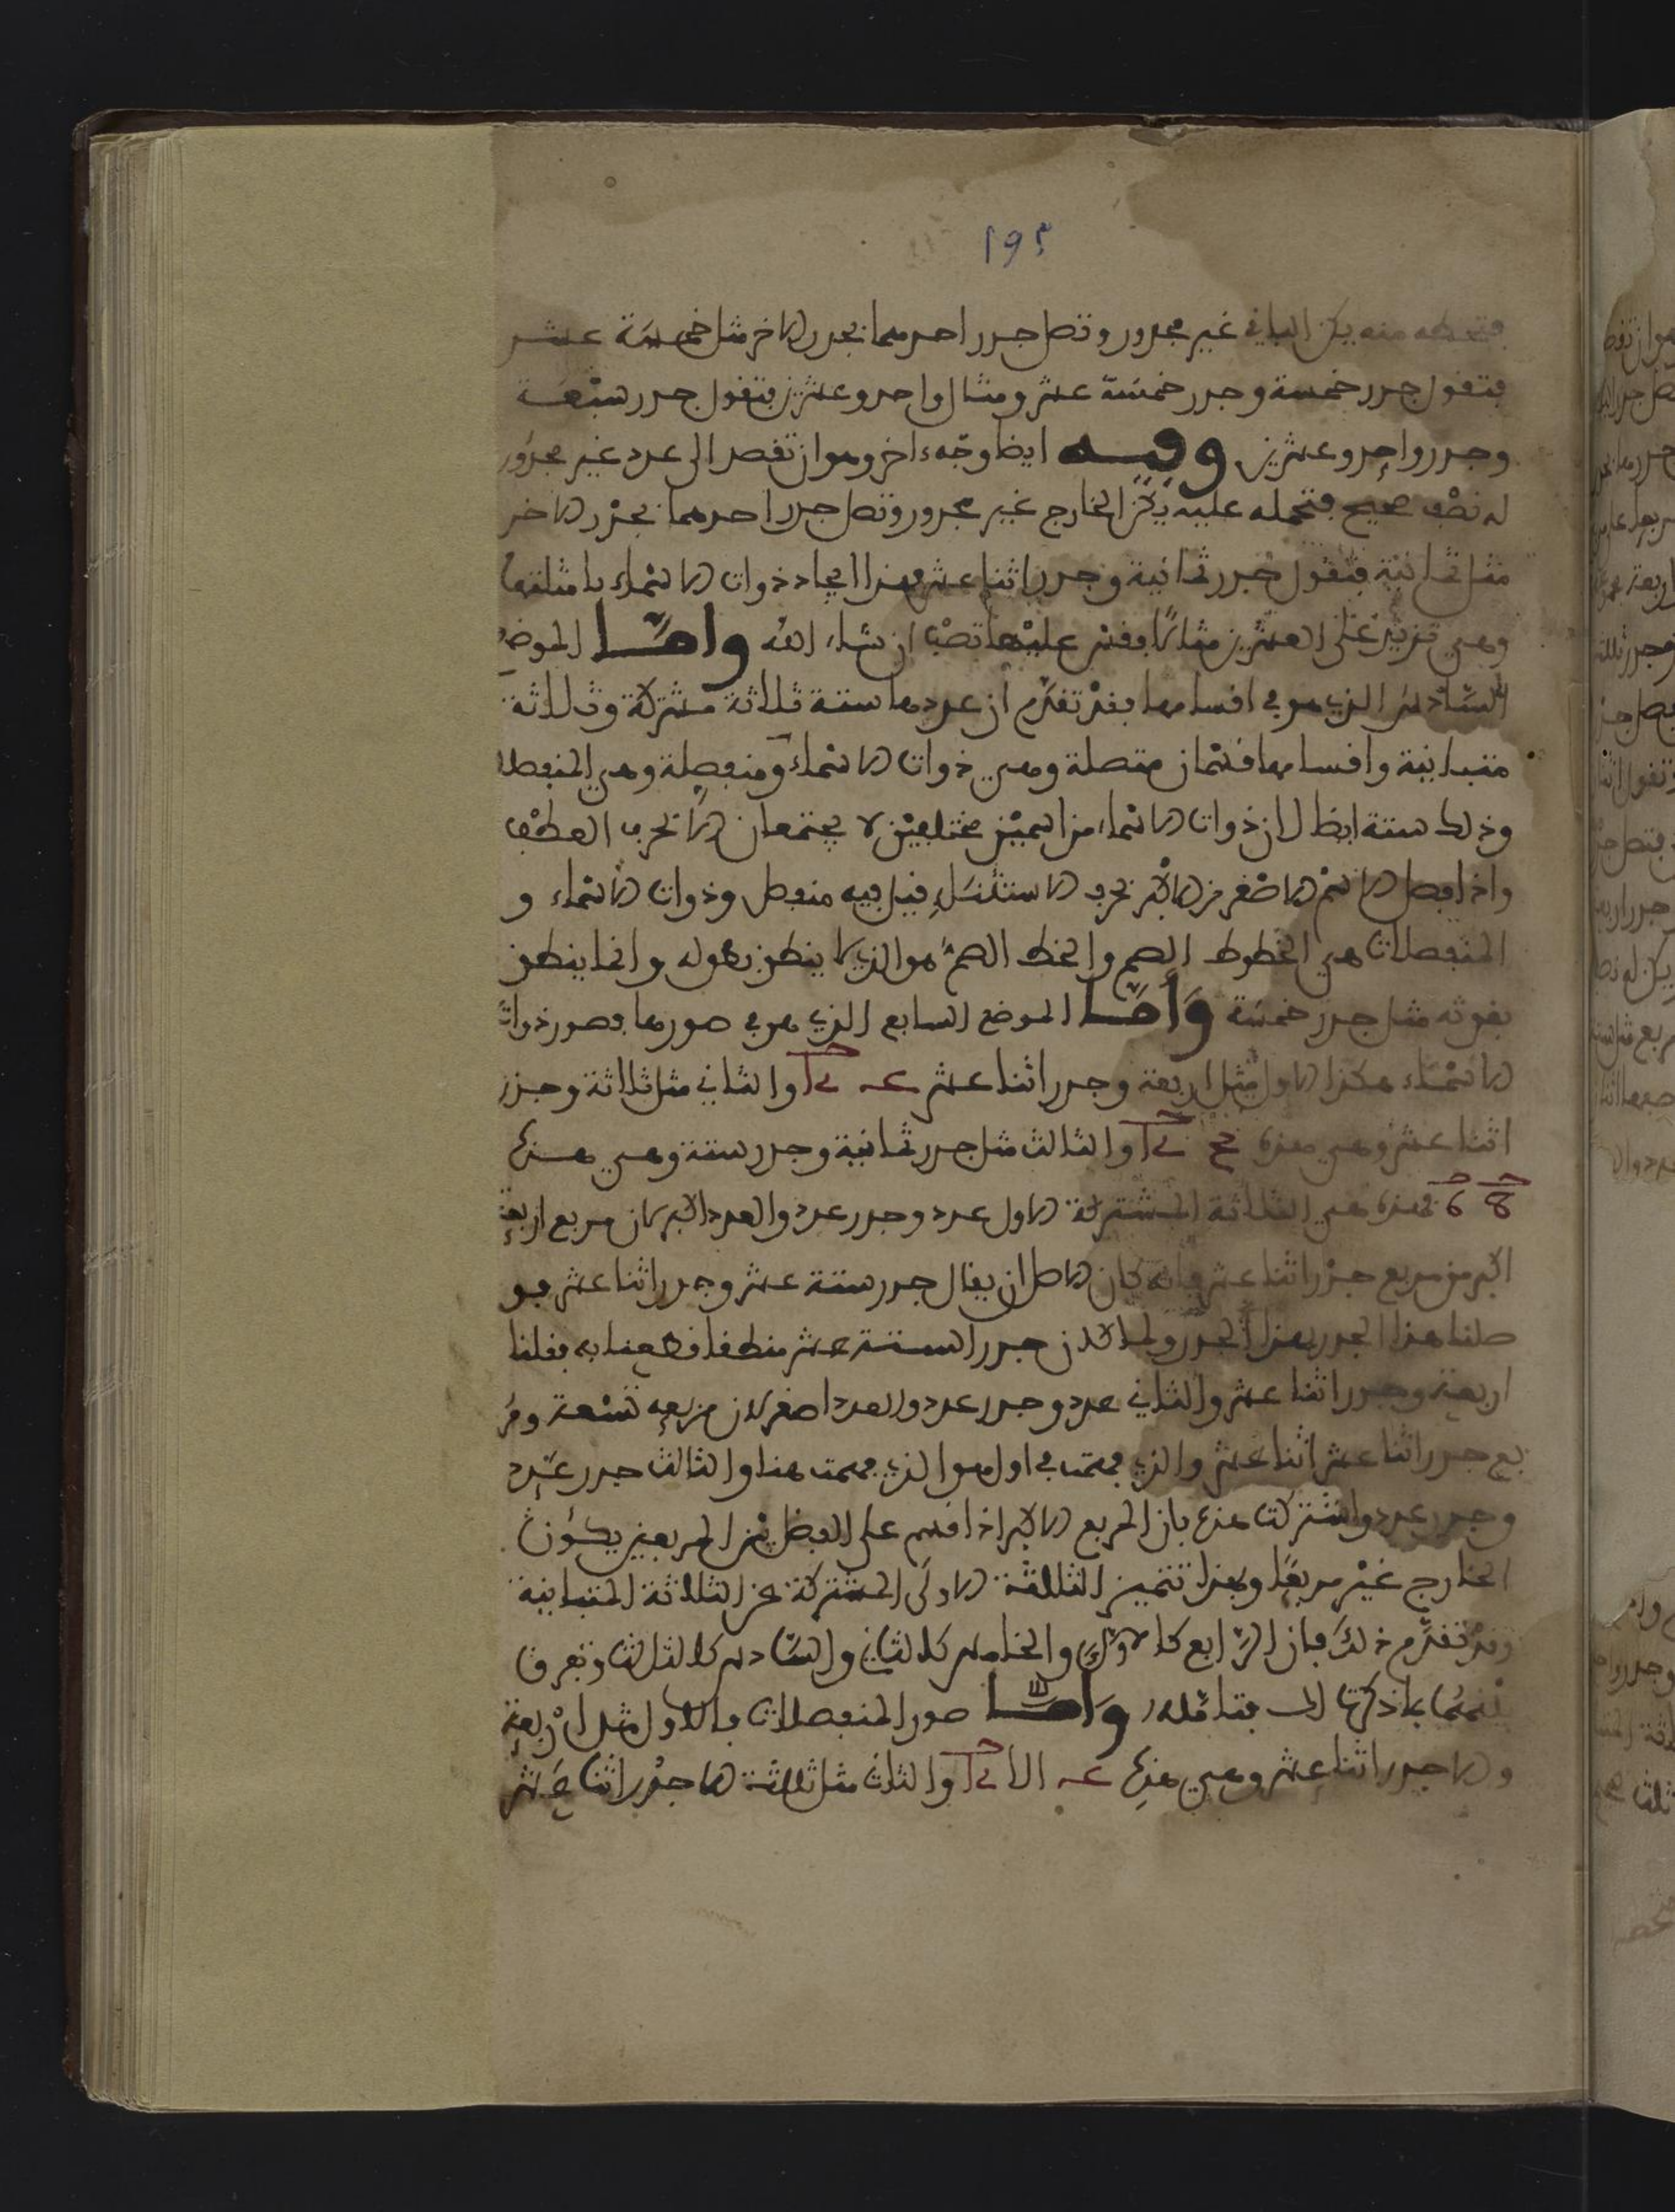 ١٩٢
فتحطه منه يكن الباقي غير مجذور وتصل جذر احدهما بجذر الاخر مثل خمسة عشر
فتقول جذر خمسة وجذر خمسة عشر ومثال واحد وعشرين فتقول جذر سبعة
وجذر واحد وعشرين وفيه ايضا وجه ءاخر وهو ان تقصد الى عدد غير مجذور
له نصف صحيح فتحمله عليه يكن الخارج غير مجذور وتصل جذر احدهما بجذر الاخر
مثل ثمانية فتقول جذر ثمانية وجذر اثنا عشر فهذا ايجاد ذوات الاسماء بامثلتها
وهي تزيد على العشرين مثالا فقس عليها تصب ان شاء الله واما الموضع
السادس الذي هو في اقسامها فقد تقدم ان عددها ستة ثلاثة مشتركة وثلاثة
متباينة واقسامها قسمان متصلة وهي ذوات الاسماء ومنفصلة وهي المنفصلا
وذلك ستة ايضا لان ذوات الاسماء من اسمين مختلفين لا يجتمعان الا بحرف العطف
واذا فصل الاسم الاصغر من الاكبر بحرف الاستثنا قيل فيه منفصل وذوات الاسماء و
المنفصلات هي الخطوط الصم والخط الاصم هو الذي لا ينطق بطوله وانما ينطق
بقوته مثل جذر خمسة واما الموضع السابع الذي هو في صورها فصور ذوات
الاسماء هكذا الاول مثل اربعة وجذر اثنا عشر والثاني مثل ثلاثة وجذر
اثنا عشر وهي هذه والثالث مثل جذر ثمانية وجذر ستة وهي هذه
8 6 فهذه هي الثلاثة المشتركة الاول عدد وجذر عدد والعدد اكبر لان مربع اربعة
اكبر من مربع جذر اثنا عشر فانه كان الاصل ان يقال جذر ستة عشر وجذر اثنا عشر فو
صلنا هذا الجذر بهذا الجذر ولما كان جذر الستة عشر منطقا قطعنا به فقلنا
اربعة وجذر اثنا عشر والثاني عدد وجذر عدد والعدد اصغر لان مربعه تسعة ومر
بع جذر اثنا عشر اثنا عشر والذي فهمت في اول هو الذي فهمت هنا والثالث جذر عدد
وجذر عدد واشتركت هذه بان المربع الاكبر اذا قسم على الفضل بين المربعين يكون
الخارج غير مربعا وبهذا تتميز الثلاثة الاولى المشتركة عن الثلاثة المتباينة
وقد تقدم ذلك فان الرابع كالاول والخامس كالثاني والسادس كالثالث وتفرق
بينهما بما ذكرته لك فتامله واما صور المنفصلات فالاول مثل اربعة
والا جذر اثنا عشر وهي هذه الا والثاني مثل ثلاثة الا جذر اثنا عشر